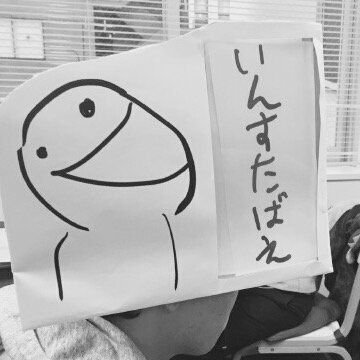 いんすたばえ